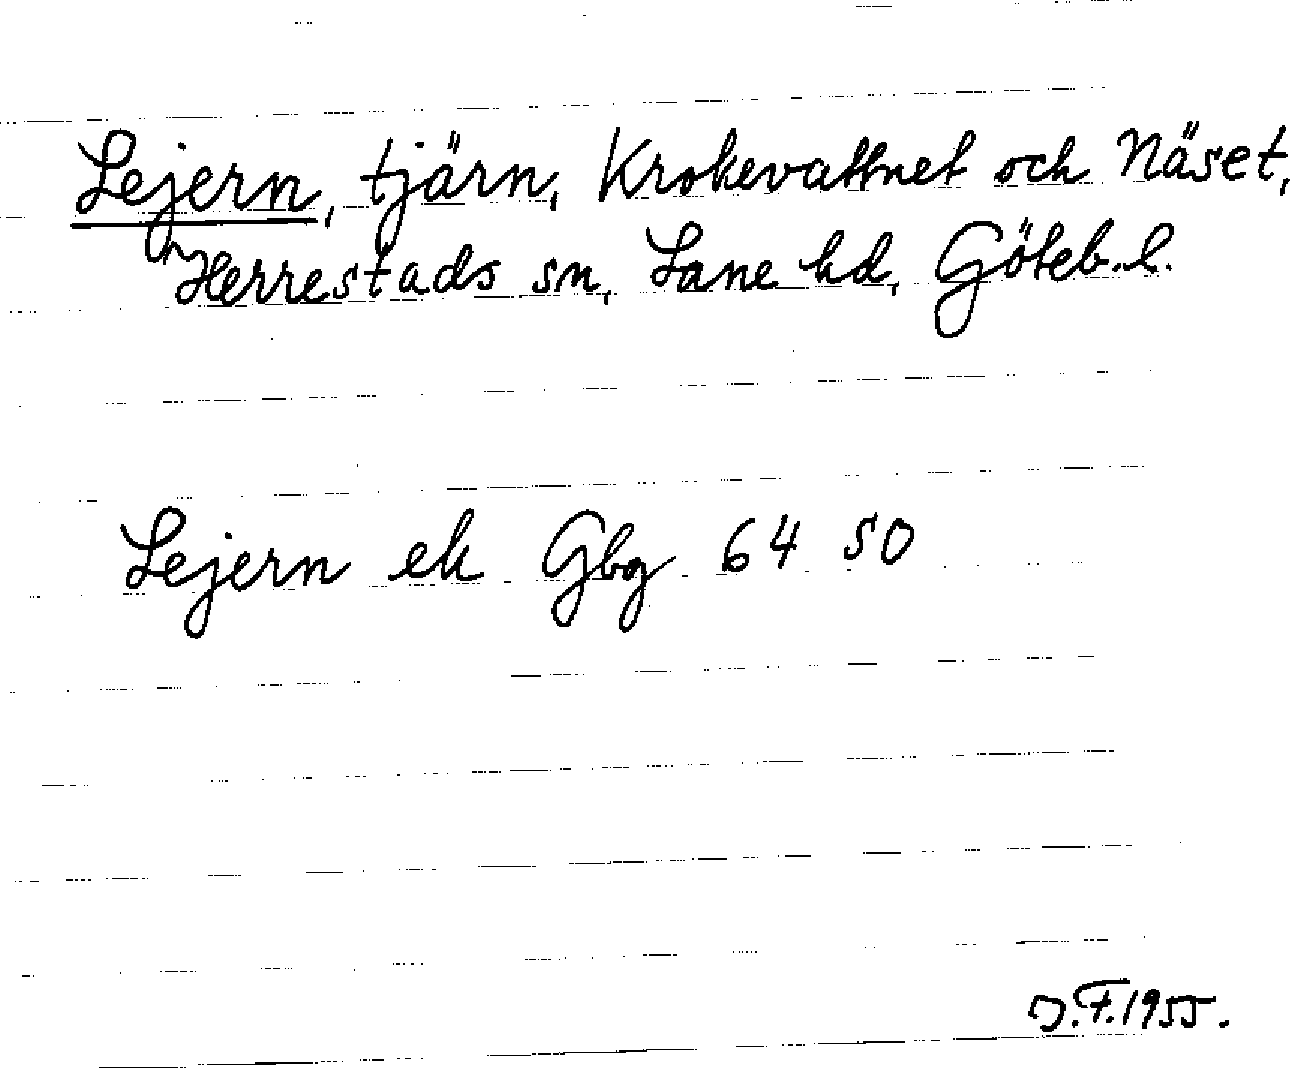 Lejern, tjärn, Krokevattnet och Näset,
Herrestads sn, Lane hd, Göteb. l.
Lejern ek Gbg 64 SO
J.F. 1955.